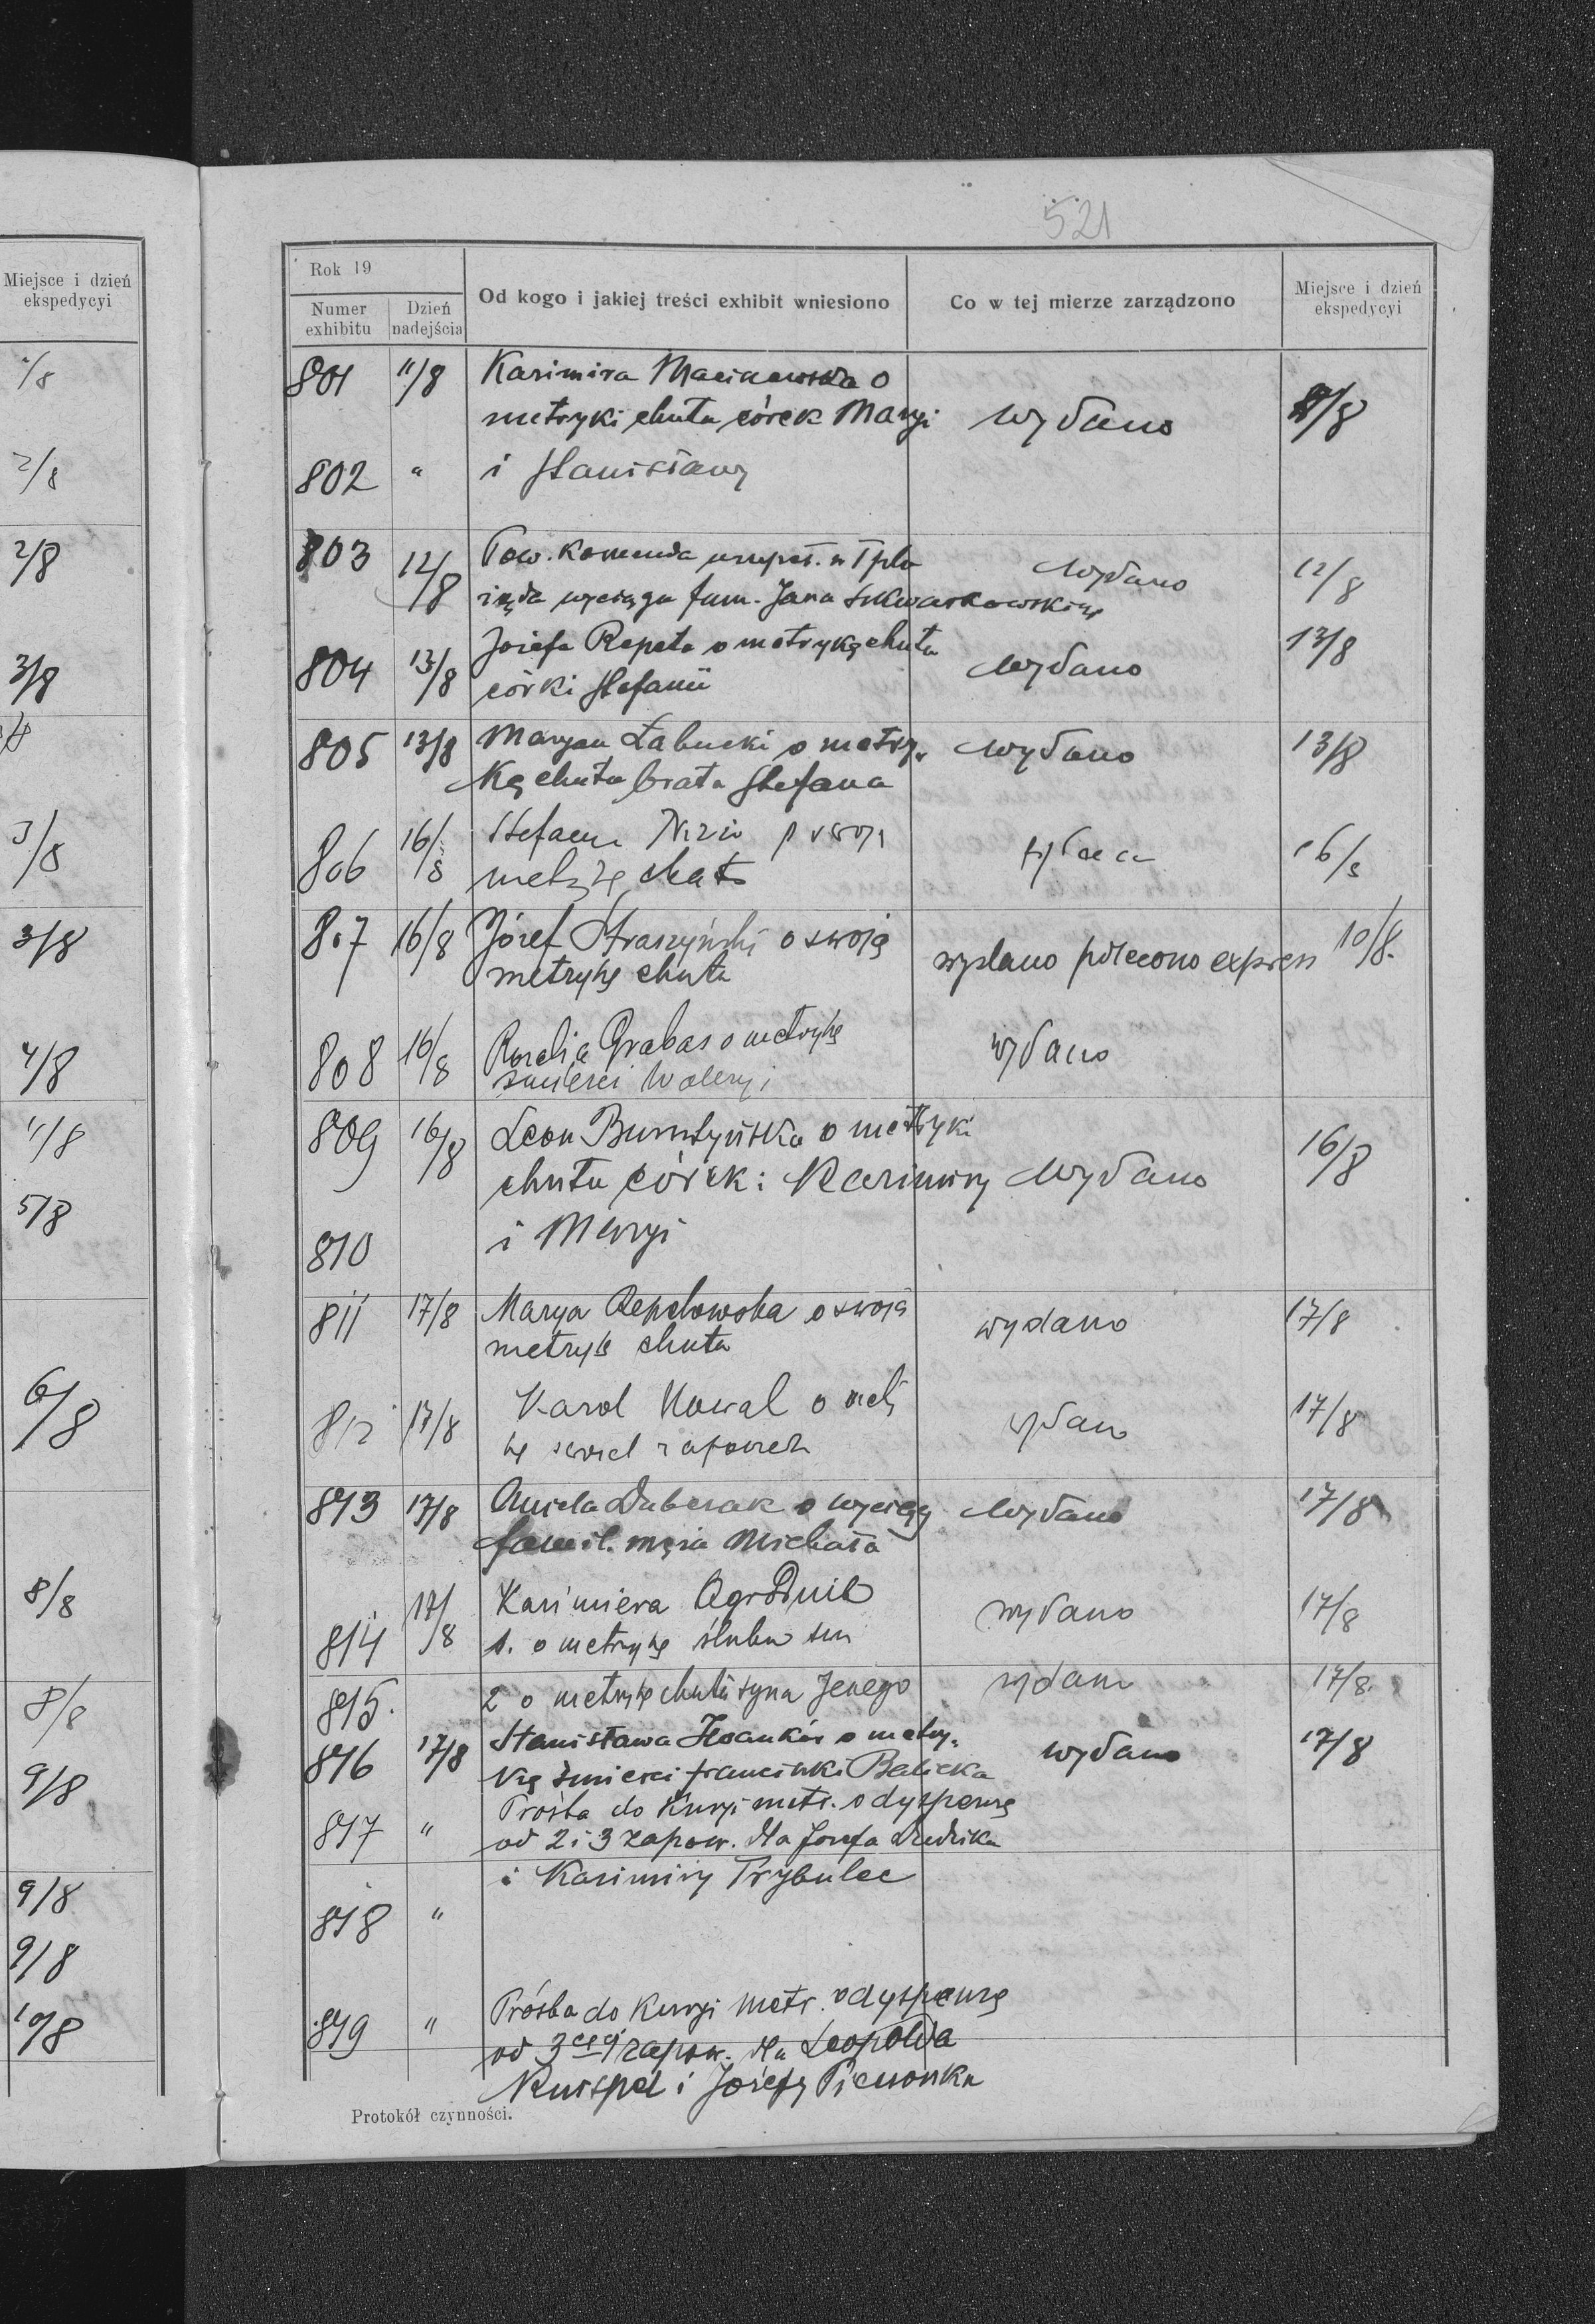 Miejsce i dzień
ekspedycyi
1/8
2/8
2/8
3/8
3/8
3/8
4/8
4/8
5/8
6/8
8/8
8/8
9/8
9/8
9/8
10/8
521
Rok 19
Numer
exhibitu
Dzień
nadejścia
Od kogo i jakiej treści exhibit wniesiono
Co w tej mierze zarządzono
Miejsce i dzień
ekspedycyi
801 11/8 Kazimira o
metryki chrztu córek Maryi wydano
802 " i Stanisławy
803 12/8 Pow. Komenda uzupeł. w wydano 12/8
żąda wyciągu fam. Jana
804 13/8 Józefa Repeta o metrykę chrztu wydano 13/8
córki Stefanii
805 13/8 Maryan Łabucki o metry- wydano 13/8
kę chrztu brata Stefana
806 16/8 Stefan 16/8
metrykę chrztu
807 16/8 Józef Straszyński o swoją
metrykę chrztu wysłano polecono express 10/8.
808 16/8 Rozalia Grabas o metrykę wydano
śmierci Waleryi
809 16/8 Leon o metryki 16/8
chrztu córek: Kazimiry wydano
810 i Maryi
811 17/8 Marya o swoją wydano 17/8
metrykę chrztu
812 17/8 Karol Nowal o wydano 17/8
813 17/8 Aniela o wyciąg wydano 17/8
famil. męża Michała
814 17/8 Kazimiera Ogrodnik wydano 17/8
1. o metrykę ślubu
815. 2 o metrykę chrztu syna Jerzego wydano 17/8.
816 17/8 Stanisława o metry- wydano 17/8
kę śmierci Franciszki
817 " Prośba do Kuryi metr. o dyspenzę
od 2 i 3 zapow. dla Józefa Dudzika
i Kazimiry Trybulec
818 "
819 " Prośba do Kuryi Metr. o dyspenzę
od 3ciej zapow. dla Leopolda
i Józefy Pieronka
Protokół czynności.